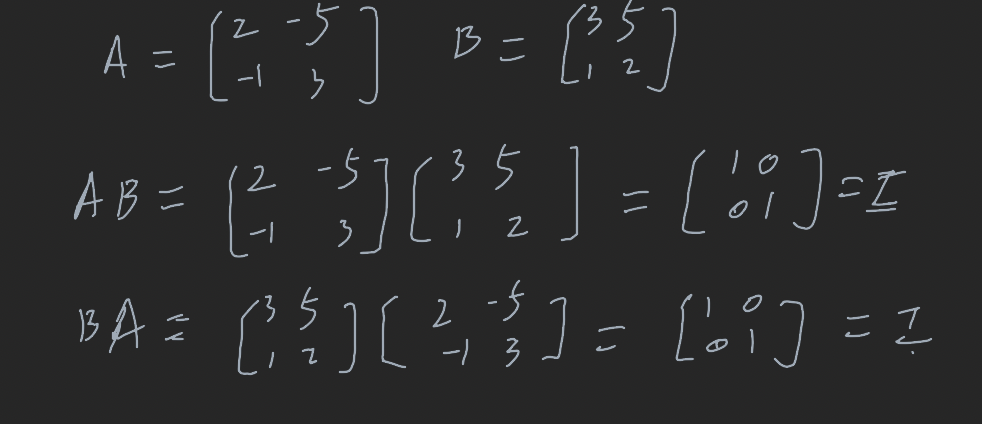 A = [2 -5; -1 3] B = [3 5; 1 2]
AB = [2 -5; -1 3] [3 5; 1 2] = [1 0; 0 1] = I
BA = [3 5; 1 2] [2 -5; -1 3] = [1 0; 0 1] = I